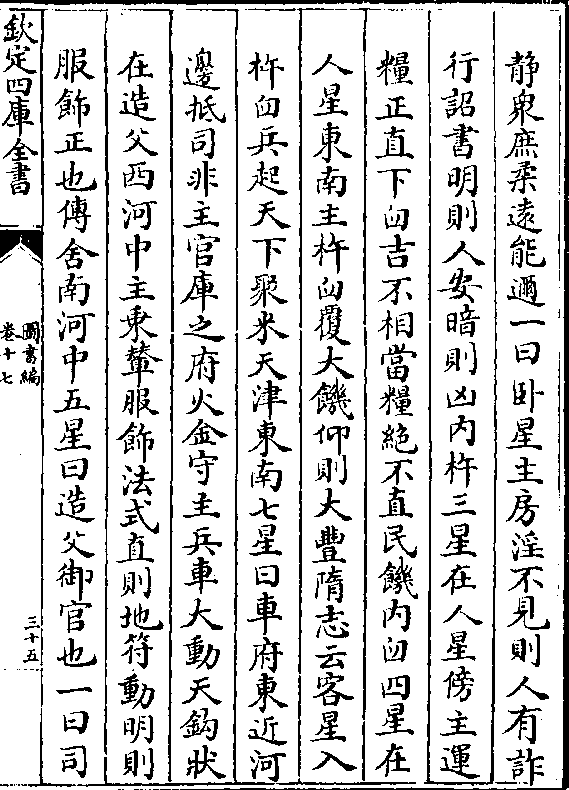 静衆庶柔遠能邇一曰卧星主房淫不見則人有詐
行詔書明則人安暗則凶内杵三星在人星傍主運
糧正直下臼吉不相當糧絶不直民饑内臼四星在
人星東南主杵臼覆大饑仰則大豐隋志云客星入
杵臼兵起天下聚米天津東南七星曰車府東近河
邊抵司非主官庫之府火金守主兵車大動天鈎狀
在造父西河中主乗輦服飾法式直則地符動明則
服飾正也傳舍南河中五星曰造父御官也一曰司
欽定四庫全書
圖書編
卷十七
三十五